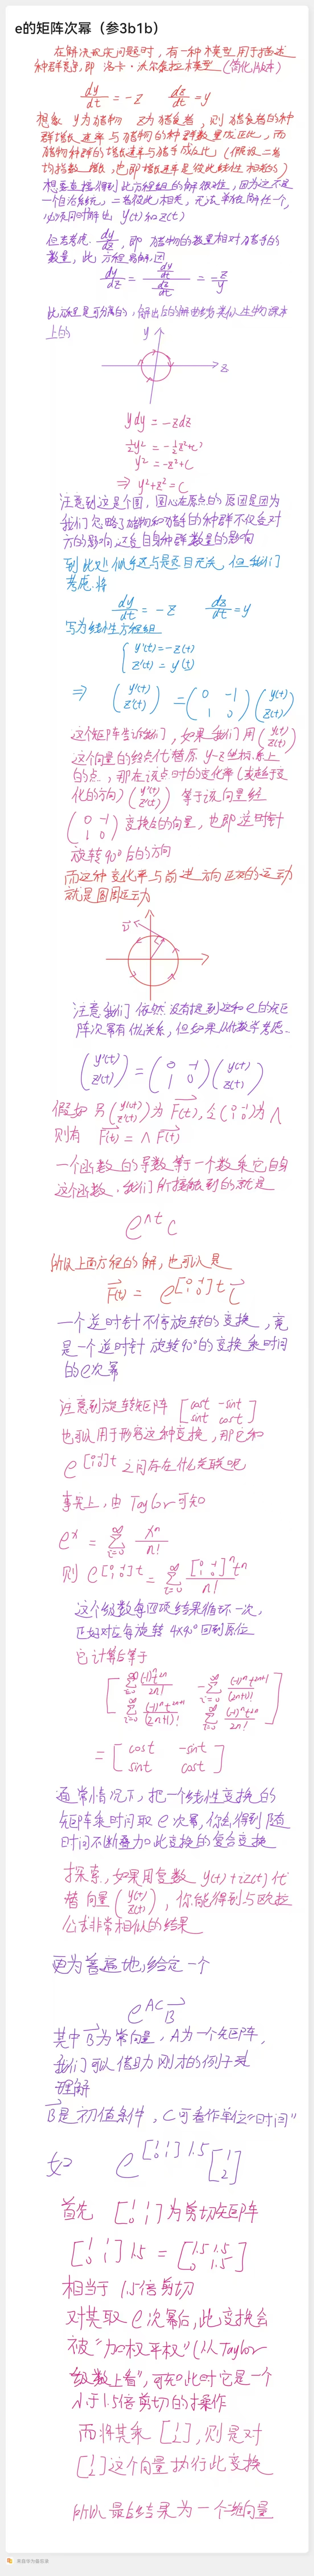 e的矩阵次幂（参3b1b）
在解决现实问题时，有一种模型用于描述
种群竞争，即 洛卡·沃尔泰拉模型（简化版本）
dy/dt = -z dz/dt = y
想象 y为猎物 z为捕食者，则捕食者的种
群增长速率与猎物的种群数量成正比，而
猎物种群的增长速率与捕手成反比（假设二者
均指数增长，也即增长速率是彼此线性相关的）
想要直接得到此方程组的解很难，因为这不是
一个自治系统，二者彼此相关，无法单独解任一个，
必须同时解出 y(t)和z(t)
但去考虑 dy/dz，即 猎物的数量相对捕手的
数量，此方程易解，因
dy/dz = (dy/dt)/(dz/dt) = -z/y
此方程是可分离的，解出后的解曲线类似生物课本
上的
y
z
ydy = -zdz
½y² = -½z²+C'
y² = -z²+C
⇒ y²+z² = C
注意到这是个圆，圆心在原点的原因是因为
我们忽略了猎物和捕手的种群不仅会对
方的影响，还受自身种群数量的影响
到此处似乎还与题目无关，但我们
考虑将
dy/dt = -z dz/dt = y
写为线性方程组
{ y'(t)=-z(t)
z'(t)=y(t)
⇒ (y'(t) z'(t)) = (0 -1 1 0)(y(t) z(t))
这个矩阵告诉我们，如果我们用(y(t) z(t))
这个向量的终点代替原 y-z坐标系上
的点，那在该点时的变化率（或趋于变
化的方向）(y'(t) z'(t)) 等于该向量经
(0 -1 1 0) 变换后的向量，也即逆时针
旋转90°后的方向
而这种变化率与前进方向正交的运动
就是圆周运动
注意我们依然没有提到这和e的矩
阵次幂有什么关系，但如果从代数学考虑.
(y'(t) z'(t)) = (0 -1 1 0)(y(t) z(t))
假如 另(y(t) z(t))为 F(t)，令(0 -1 1 0)为 Λ
则有 F'(t) = Λ F(t)
一个函数的导数等于一个数乘它自身
这个函数，我们所接触到的就是
e^Λt C
所以上面方程的解，也可以是
F(t) = e^[0 -1 1 0]t C
一个逆时针不停旋转的变换，竟
是一个逆时针旋转90°的变换乘时间
的e次幂
注意到旋转矩阵 [cost -sint sint cost]
也可以用于形容这种变换，那它和
e^[0 -1 1 0]t 之间存在什么关联呢
事实上，由Taylor可知
e^x = Σ_{i=0}^∞ x^n/n!
则 e^[0 -1 1 0]t = Σ_{i=0}^∞ [0 -1 1 0]^n t^n/n!
这个级数每四项结果循环一次，
正好对应每旋转 4×90°回到原位
它计算后等于
[Σ_{i=0}^∞ (-1)^n t^2n/2n! -Σ_{i=0}^∞ (-1)^n t^2n+1/(2n+1)!
Σ_{i=0}^∞ (-1)^n t^2n+1/(2n+1)! Σ_{i=0}^∞ (-1)^n t^2n/2n!]
= [cost -sint sint cost]
通常情况下，把一个线性变换的
矩阵乘时间取e次幂，你会得到随
时间不断叠加此变换的复合变换
探索，如果用复数 y(t)+iz(t)代
替向量(y(t) z(t))，你能得到与欧拉
公式非常相似的结果
更为普遍地，给定一个
e^AC B
其中B为常向量，A为一个矩阵，
我们可以借助刚才的例子来
理解
B是初值条件，C可看作单位“时间”
如 e^[1 1 0 1]1.5 [1 2]
首先 [1 1 0 1]为剪切矩阵
[1 1 0 1]1.5 = [1.5 1.5 0 1.5]
相当于1.5倍剪切
对其取e次幂后，此变换会
被“加权平权”（从Taylor
级数上看），可知此时它是一个
小于1.5倍剪切的操作
而将其乘[1 2]，则是对
[1 2]这个向量执行此变换
所以最终结果为一个二维向量
来自华为备忘录